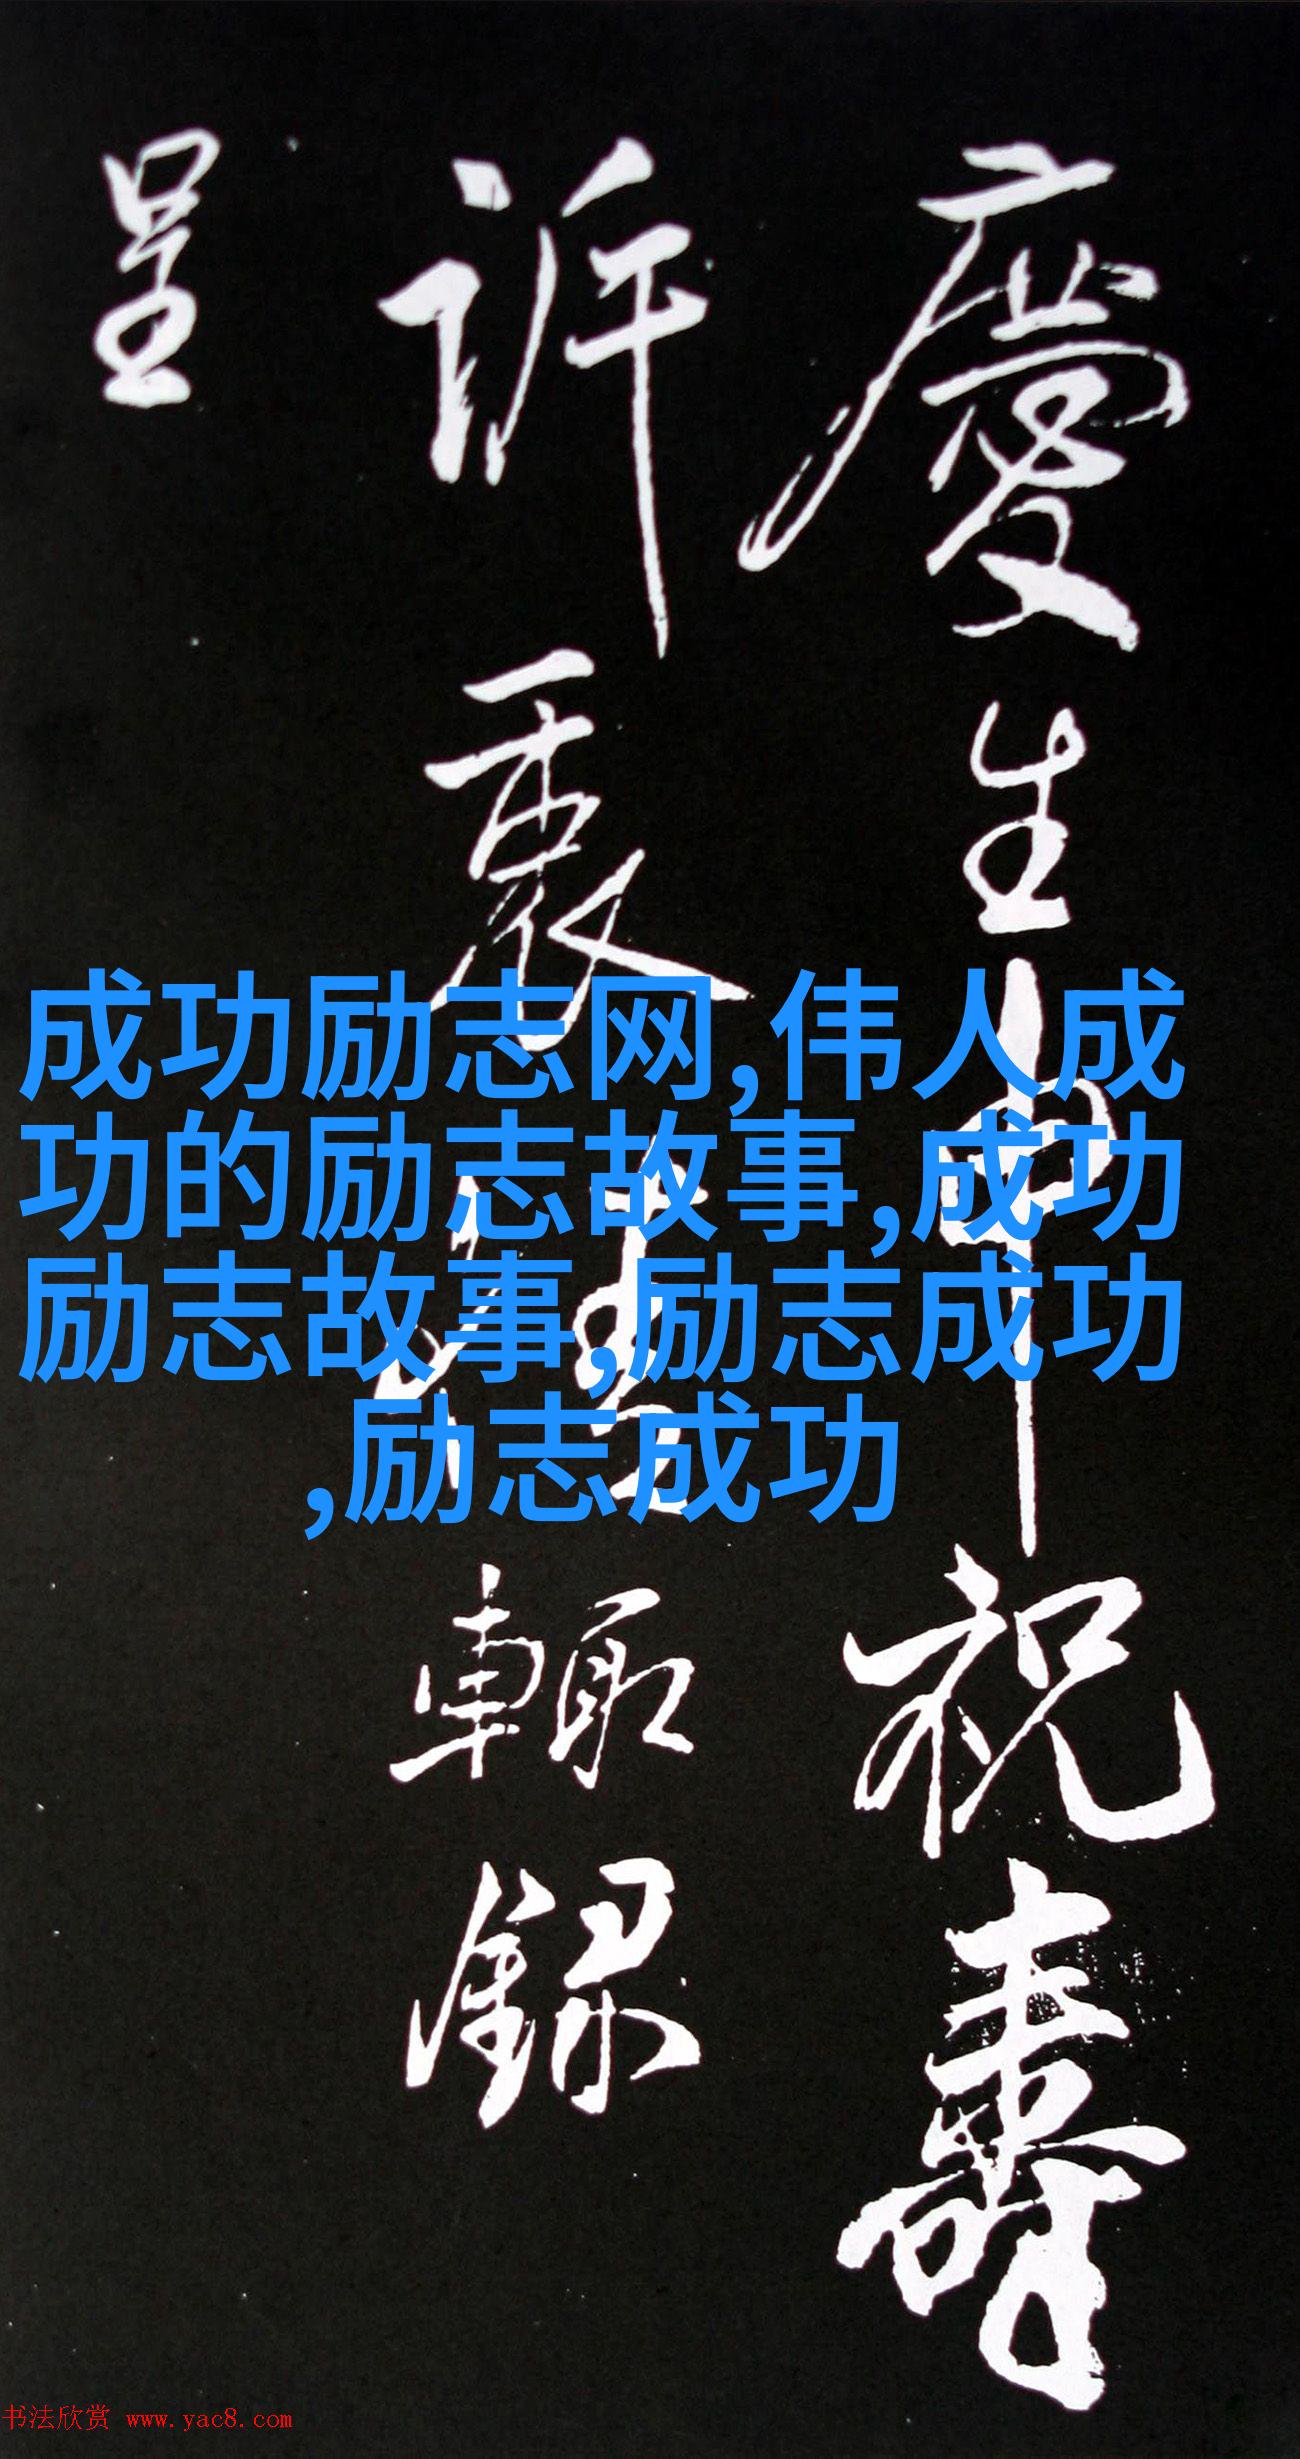 慶生申祝壽
訢裏情輒錄
呈
成功励志网,伟人成
功的励志故事,成功
励志故事,励志成功
,励志成功
书法欣赏 www.yac8.com